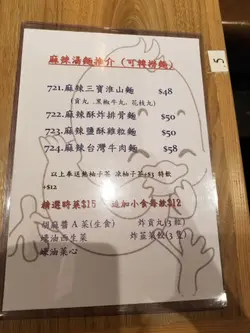 麻辣湯麵推介（可轉撈麵）
721.麻辣三寶淮山麵 $48
（貢丸．黑椒牛丸．花枝丸）
722.麻辣酥炸排骨麵 $50
723.麻辣鹽酥雞粒麵 $50
724.麻辣台灣牛肉麵 $58
以上奉送熱柚子茶 凍柚子茶+$3 特飲
+$12
精選時菜$15 追加小食每款$12
胡麻醬A菜(生食) 炸貢丸(3粒)
蠔油西生菜 炸韮菜餃(3隻)
蠔油菜心
5